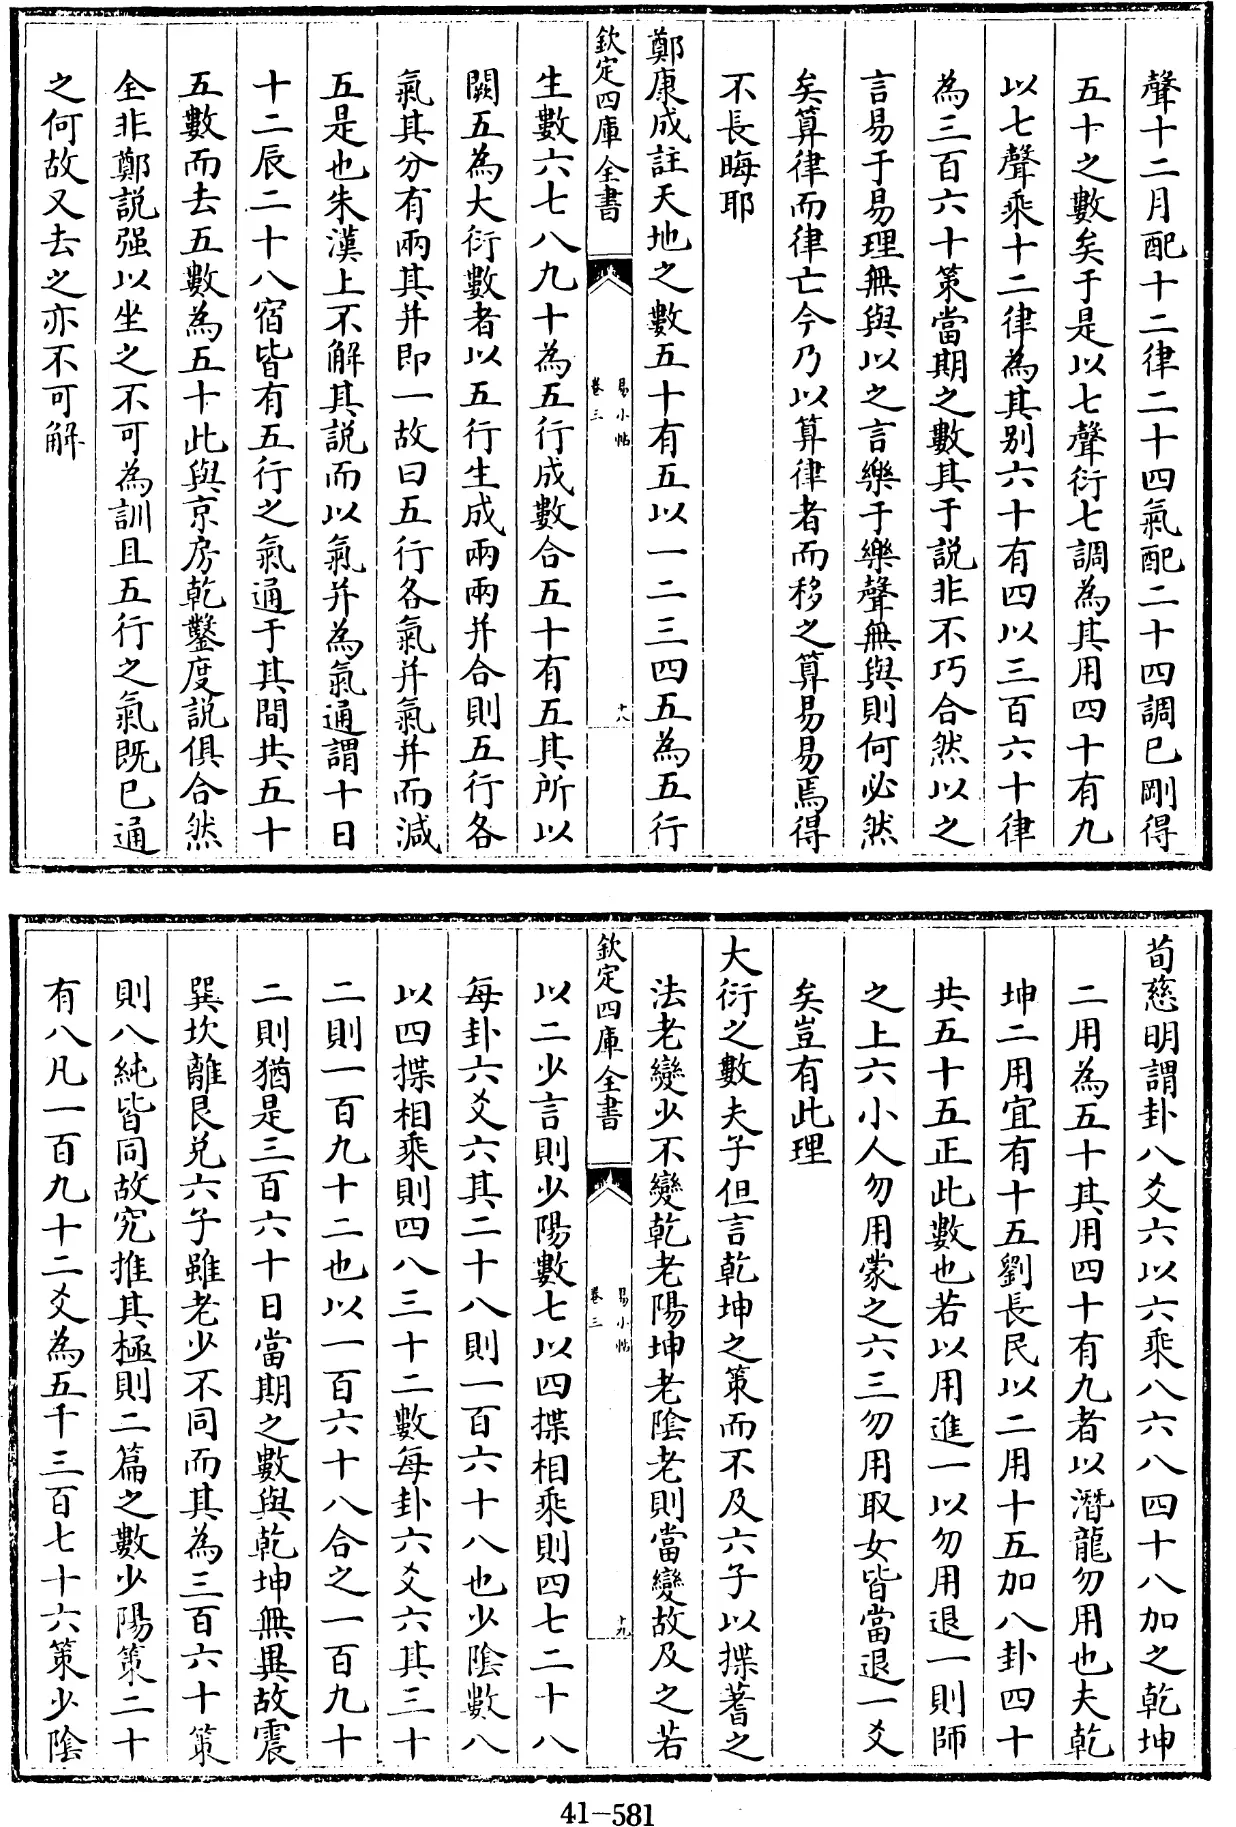 聲十二月配十二律二十四氣配二十四調已剛得
五十之數矣于是以七聲衍七調為其用四十有九
以七聲乘十二律為其别六十有四以三百六十律
為三百六十策當期之數其于説非不巧合然以之
言易于易理無與以之言樂于樂聲無與則何必然
矣算律而律亡今乃以算律者而移之算易易焉得
不長晦耶
鄭康成註天地之數五十有五以一二三四五為五行
欽定四庫全書
易小帖
卷三
十八
生數六七八九十為五行成數合五十有五其所以
闕五為大衍數者以五行生成兩兩并合則五行各
氣其分有兩其并即一故曰五行各氣并氣并而減
五是也朱漢上不解其説而以氣并為氣通謂十日
十二辰二十八宿皆有五行之氣通于其間共五十
五數而去五數為五十此與京房乾鑿度説俱合然
全非鄭説强以坐之不可為訓且五行之氣既已通
之何故又去之亦不可解
荀慈明謂卦八爻六以六乘八六八四十八加之乾坤
二用為五十其用四十有九者以潛龍勿用也夫乾
坤二用宜有十五劉長民以二用十五加八卦四十
共五十五正此數也若以用進一以勿用退一則師
之上六小人勿用蒙之六三勿用取女皆當退一爻
矣豈有此理
大衍之數夫子但言乾坤之策而不及六子以揲蓍之
法老變少不變乾老陽坤老陰老則當變故及之若
欽定四庫全書
易小帖
卷三
十九
以二少言則少陽數七以四揲相乘則四七二十八
每卦六爻六其二十八則一百六十八也少陰數八
以四揲相乘則四八三十二數每卦六爻六其三十
二則一百九十二也以一百六十八合之一百九十
二則猶是三百六十日當期之數與乾坤無異故震
巽坎離艮兑六子雖老少不同而其為三百六十策
則八純皆同故究推其極則二篇之數少陽策二十
有八凡一百九十二爻為五千三百七十六策少陰
41-581